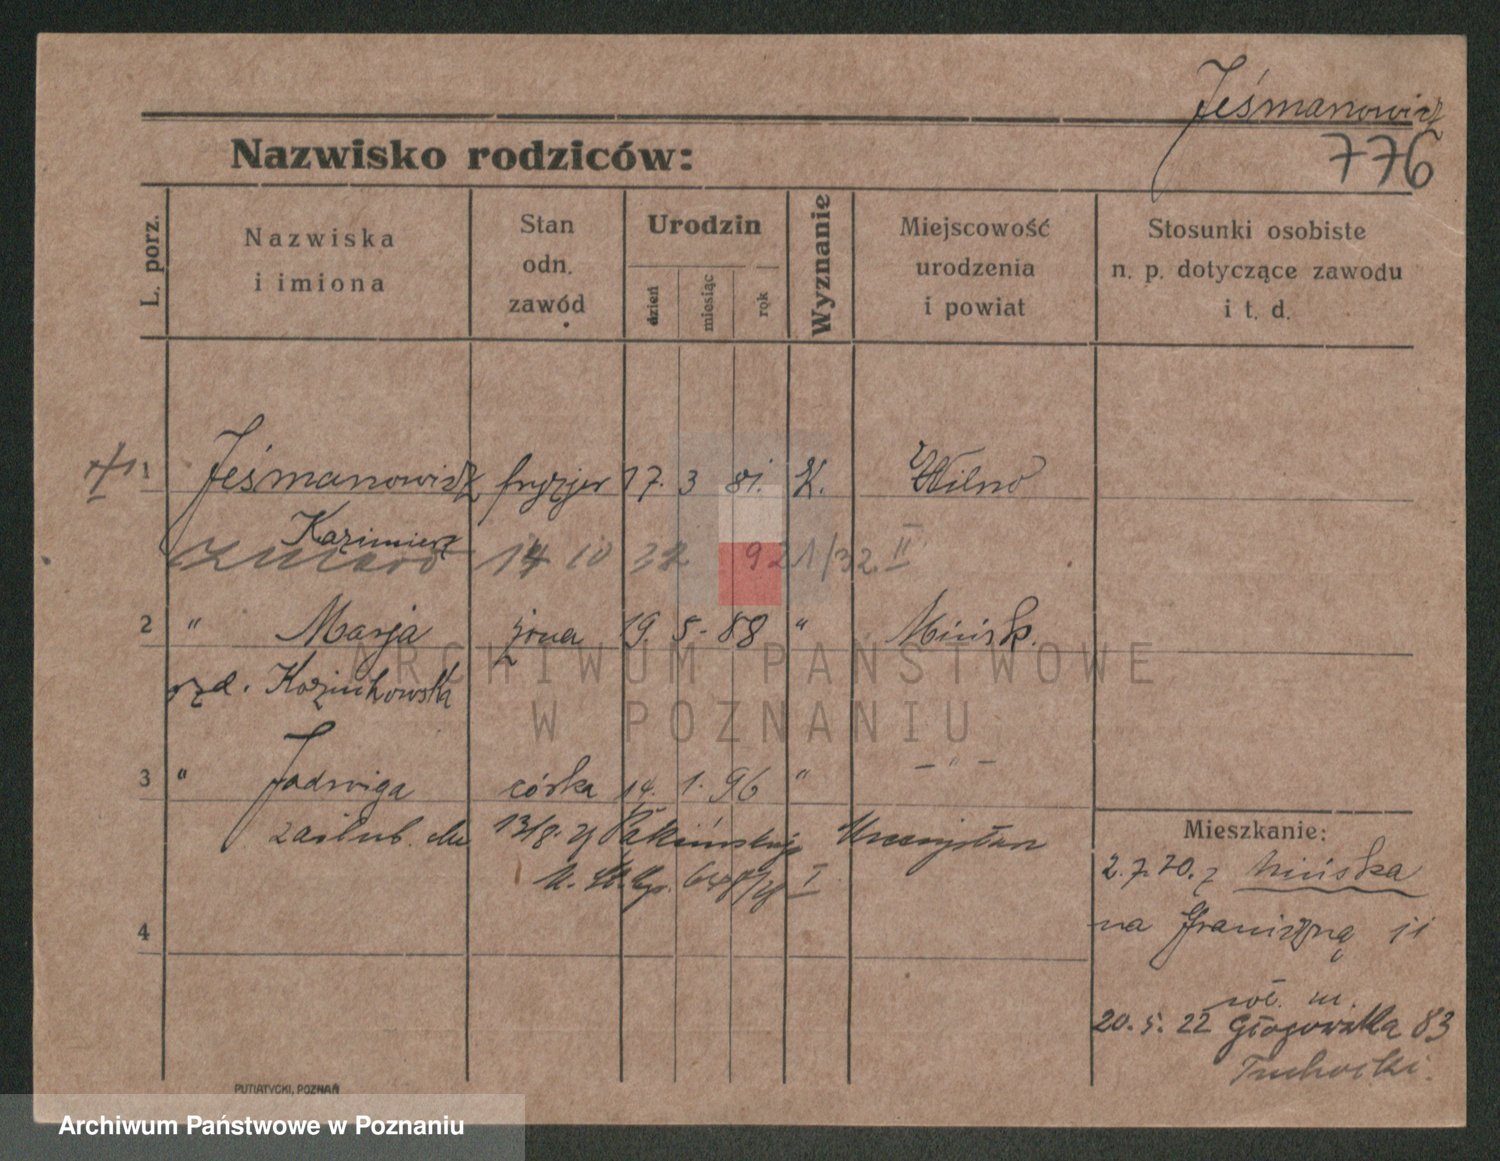 Jeśmanowicz
776
Nazwisko rodziców:
L. porz.
Nazwiska
i imiona
Stan
odn.
zawód
Urodzin
dzień
miesiąc
rok
Wyznanie
Miejscowość
urodzenia
i powiat
Stosunki osobiste
n. p. dotyczące zawodu
i t. d.
1 Jeśmanowicz fryzjer 17. 3 81. K. Wilno
Kazimierz
zmarł 14 10 32 921/32. II
2 " Marja żona 19. 5- 88 " Mińsk.
rzd. Kozuchowska
3 " Jadwiga córka 14. 1. 96 " - " -
zaślub. 13/8.
I
4
Mieszkanie:
2.7.20. z Mińska
na Graniczną 11
20.5.22 Głogowska 83
PUTIATYCKI, POZNAŃ
ARCHIWUM PAŃSTWOWE
W POZNANIU
Archiwum Państwowe w Poznaniu